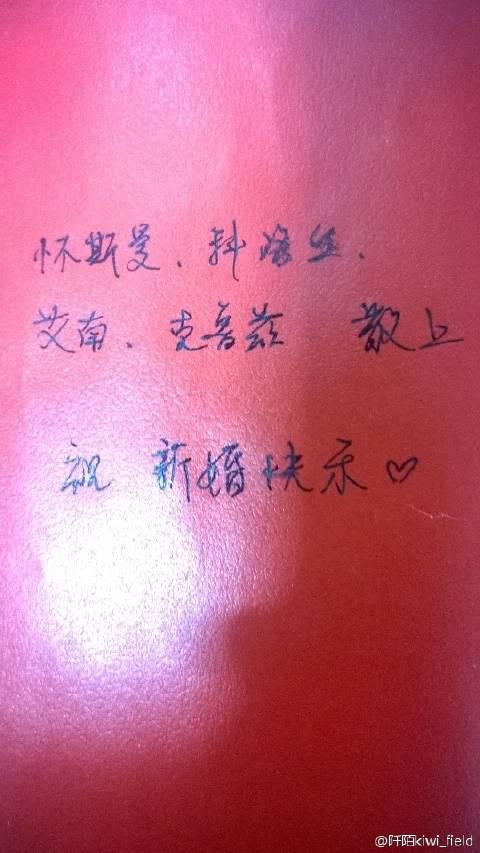 怀斯曼、科洛丝、
艾南、克鲁兹 敬上
祝 新婚快乐♡
@阡陌kiwi_field